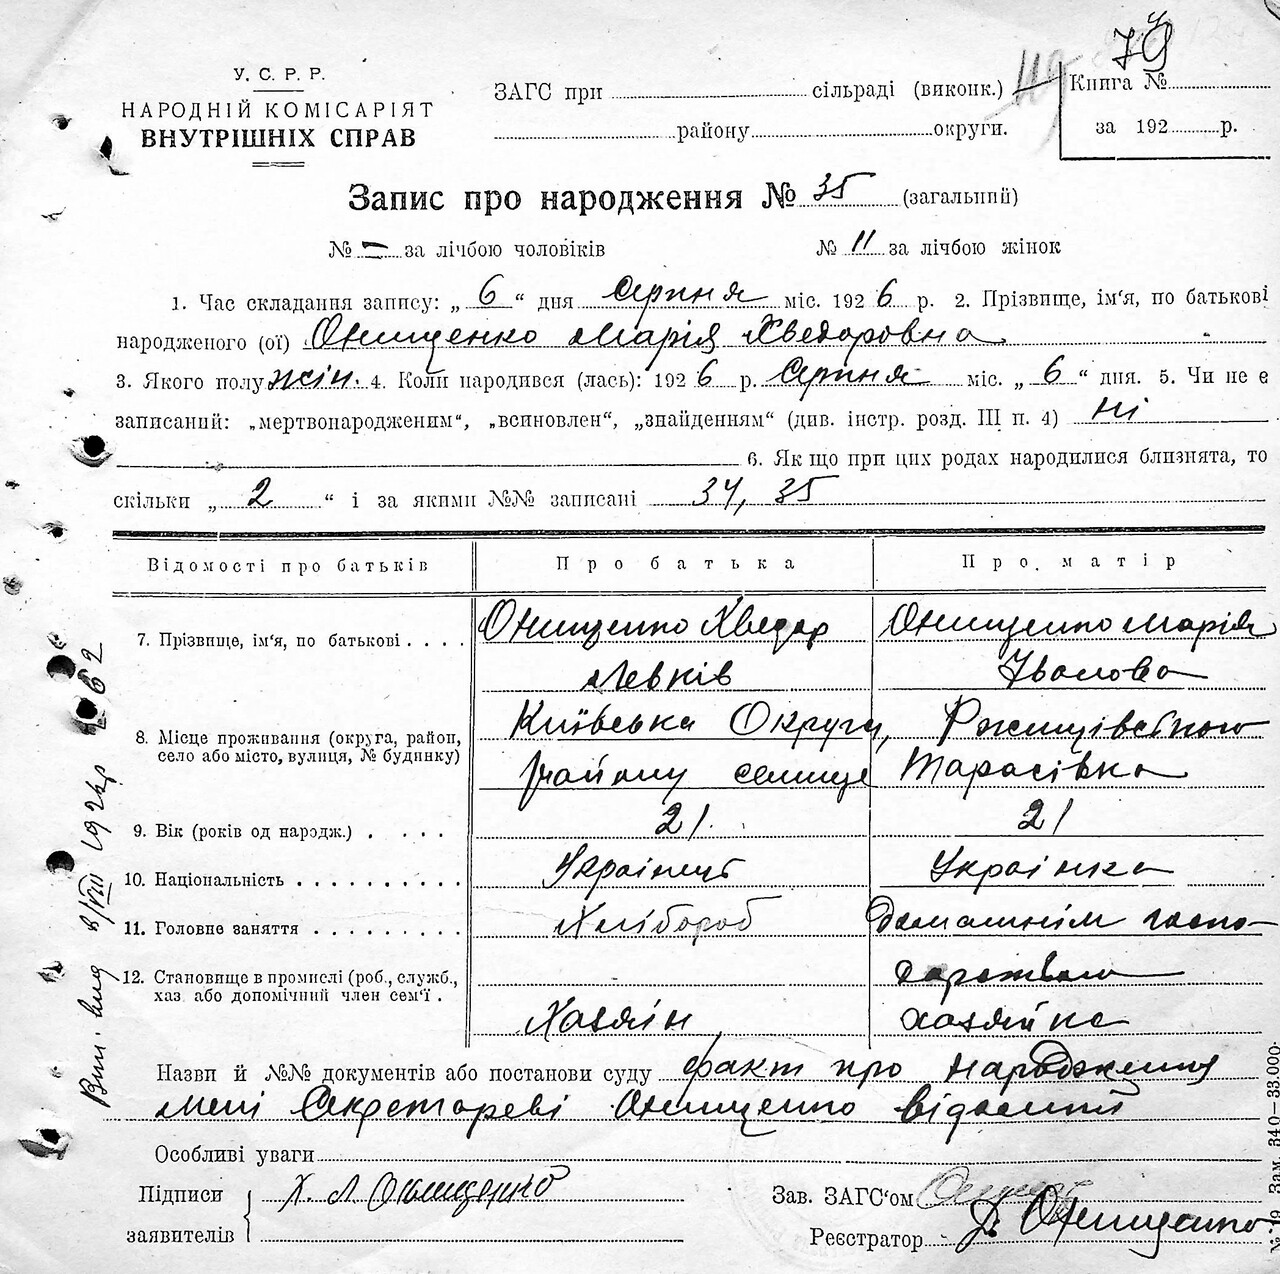 У. С. Р. Р.
НАРОДНІЙ КОМІСАРІЯТ
ВНУТРІШНІХ СПРАВ
ЗАГС при сільраді (виконк.)
району округи.
79
Книга №
за 192 р.
Запис про народження № 35 (загальний)
№ – за лічбою чоловіків № 11 за лічбою жінок
1. Час складання запису: „ 6 “ дня Серпня міс. 192 6 р. 2. Прізвище, ім'я, по батькові
народженого (ої) Онищенко Марія Хведоровна
3. Якого полу жін. 4. Коли народився (лась): 192 6 р. Серпня міс. „ 6 “ дня. 5. Чи не є
записаний: „мертвонародженим“, „всиновлен“, „знайденням“ (див. інстр. розд. III п. 4) Ні
6. Як що при цих родах народилися близнята, то
скільки „ 2 “ і за якими №№ записані 34, 35
Відомості про батьків Про батька Про матір
7. Прізвище, ім'я, по батькові . . . . Онищенко Хведор Онищенко Марія
Левків Івановa
8. Місце проживання (округа, район, село або місто, вулиця, № будинку) Київська Округа, Ржищівського
району селище Тарасівка
9. Вік (років од народж.) . . . . 21. 21
10. Національність . . . . . . . . . . Українець Українка
11. Головне заняття . . . . . . . . . Хлібороб Домашнім госпо-
дарством
12. Становище в промислі (роб., служб., хаз. або допомічний член сем'ї . Хазяїн хазяйка
Назви й №№ документів або постанови суду факт про народження
мені Секретареві Онищенко відомий
Особливі уваги
Підписи заявителів Х. Л Онищенко
Зав. ЗАГС'ом
Реєстратор Онищенко
№ 19 Зам. 340—33.000.